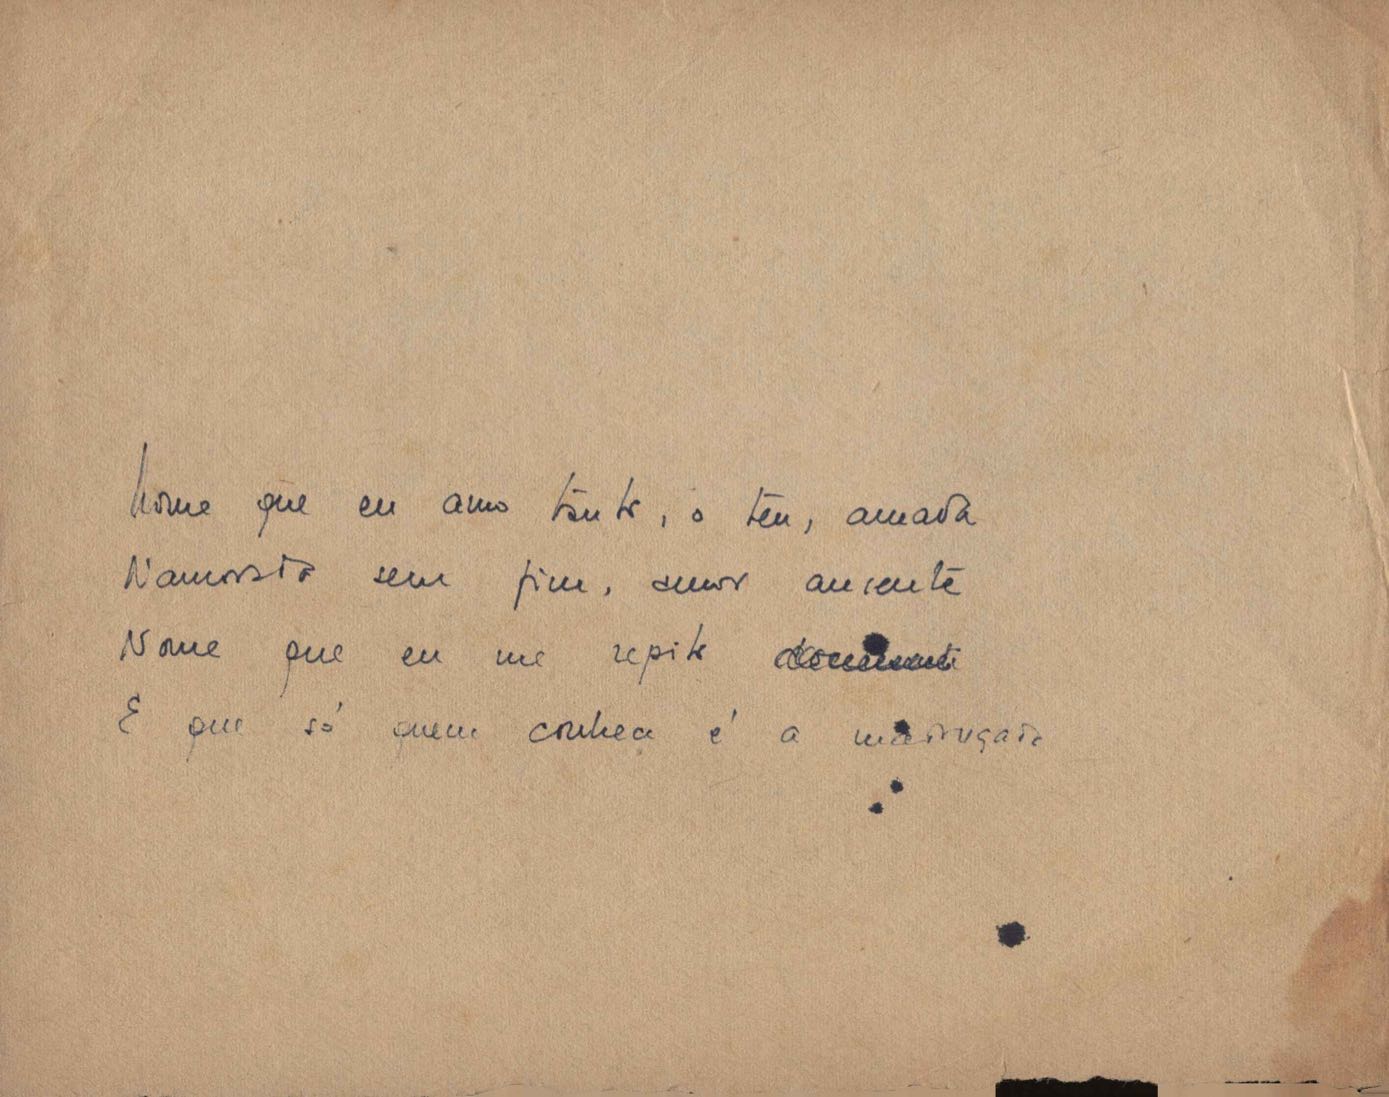 Nome que eu amo tanto, o teu, amada
Namorada sem fim, amor ausente
Nome que eu me repito
E que só quem conhece é a madrugada